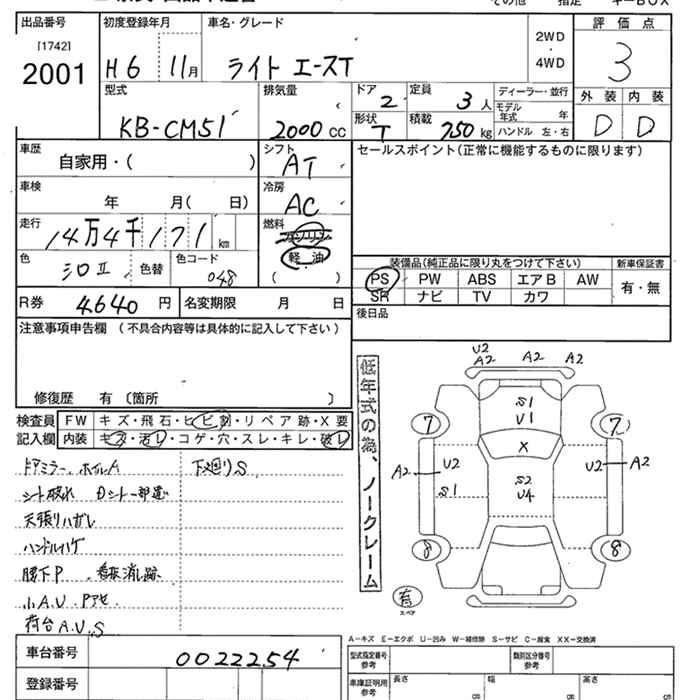 出品番号 初度登録年月 車名・グレード 評価点
[1742]
2001 H6 11月 ライトエースT 2WD・4WD 3
型式 排気量 ドア 定員 ディーラー・並行 外装 内装
KB-CM51 2000cc 2 3人 モデル年式 年 D D
形状 積載 ハンドル 左・右
T 750kg
車歴 シフト セールスポイント(正常に機能するものに限ります)
自家用・( ) AT
車検 冷房
年 月( 日) AC
走行 燃料
14万4千171km ガソリン
軽油
( )
色 色替 色コード
シロⅡ 048
装備品(純正品に限り丸をつけて下さい) 新車保証書
PS PW ABS エアB AW 有・無
SR ナビ TV カワ
R券 4640円 名変期限 月 日 後日品
注意事項申告欄 (不具合内容等は具体的に記入して下さい)
修復歴 有 〔箇所 〕
低年式の為、ノークレーム
検査員 FW キズ・飛石・ヒビ割・リペア跡・X要
記入欄 内装 キズ・汚レ・コゲ・穴・スレ・キレ・破レ
ドアミラー、ホイルA 下廻りS
シート破れ
天張りハガレ
ハンドルハゲ
腰下P 、看板消し跡
小A.U.
荷台A.U.S
U2
A2 A2 A2
S1
U1
7 7
X
A2 U2 U2 A2
S1 S2
U4
8 8
有
スペア
A-キズ E-エクボ U-凹み W-補修跡 S-サビ C-腐食 XX-交換済
車台番号 0022254
登録番号
型式指定番号 参考 類別区分番号 参考
車庫証明用 参考 長さ cm 幅 cm 高さ cm